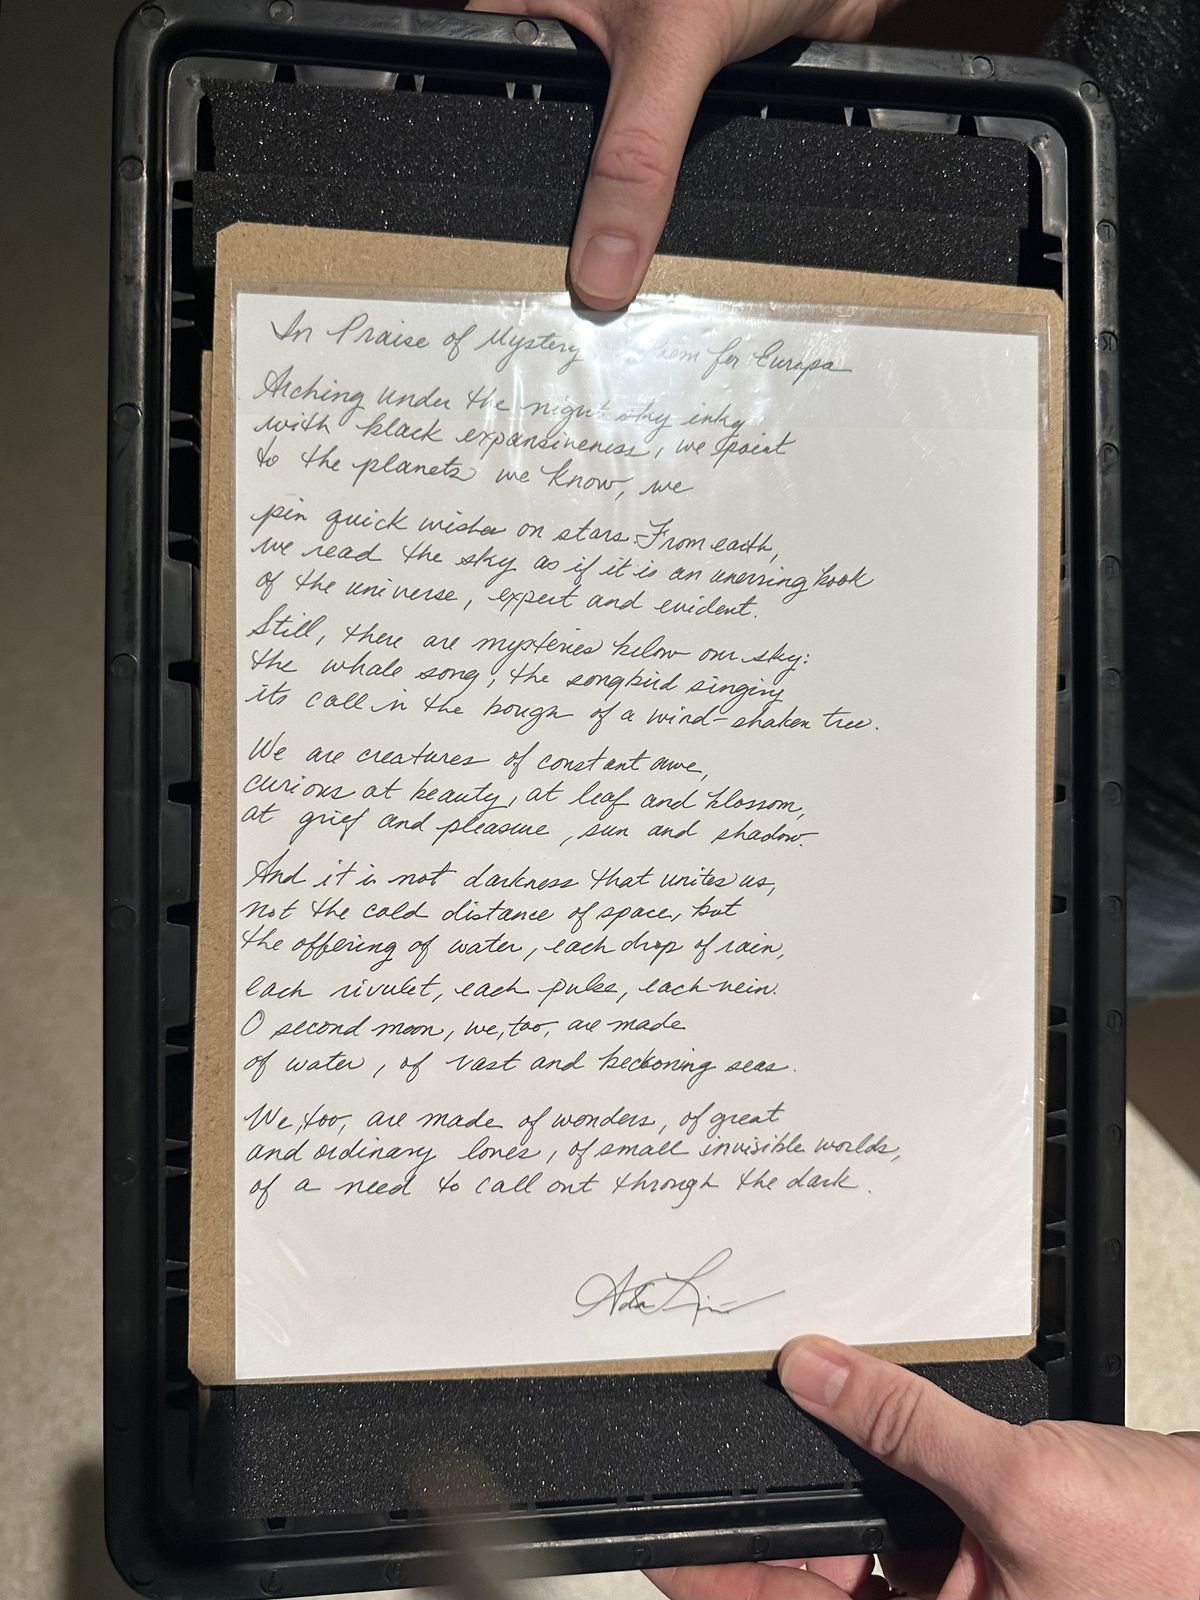 In Praise of Mystery Poem for Europa
Arching under the night sky inky
with black expansiveness, we point
to the planets we know, we
pin quick wishes on stars. From earth,
we read the sky as if it is an unerring book
of the universe, expert and evident.
Still, there are mysteries below our sky:
the whale song, the songbird singing
its call in the bough of a wind-shaken tree.
We are creatures of constant awe,
curious at beauty, at leaf and blossom,
at grief and pleasure, sun and shadow.
And it is not darkness that unites us,
not the cold distance of space, but
the offering of water, each drop of rain,
each rivulet, each pulse, each vein.
O second moon, we, too, are made
of water, of vast and beckoning seas.
We, too, are made of wonders, of great
and ordinary loves, of small invisible worlds,
of a need to call out through the dark.
Ada Limón